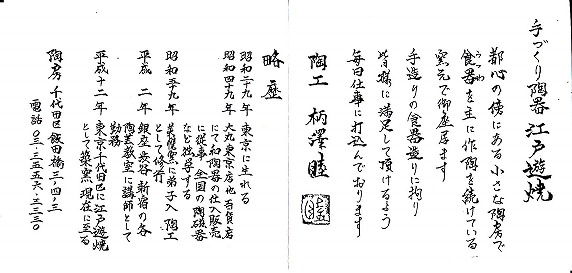 手づくり陶器 江戸遊焼
都心の傍にある小さな陶房で
食器を主に作陶を続けている
うつわ
窯元で御座居ます
手造りの食器造りに拘り
皆様に満足して頂けるよう
毎日仕事に打込んでおります
陶工 柄澤
略歴
昭和二十九年 東京に生れる
昭和四十九年 大丸東京店他百貨店
にて和陶器の仕入販売
に従事 全国の陶磁器
など独学する
昭和五十九年
窯に弟子入 陶工
として修行
平成 二年 銀座 長谷 新宿の各
陶芸教室に講師として
勤務
平成十二年 東京千代田区に江戸遊焼
として築窯 現在に至る
陶房 千代田区飯田橋三ノ四ノ三
電話 〇三ノ三五五六ノ二三三〇